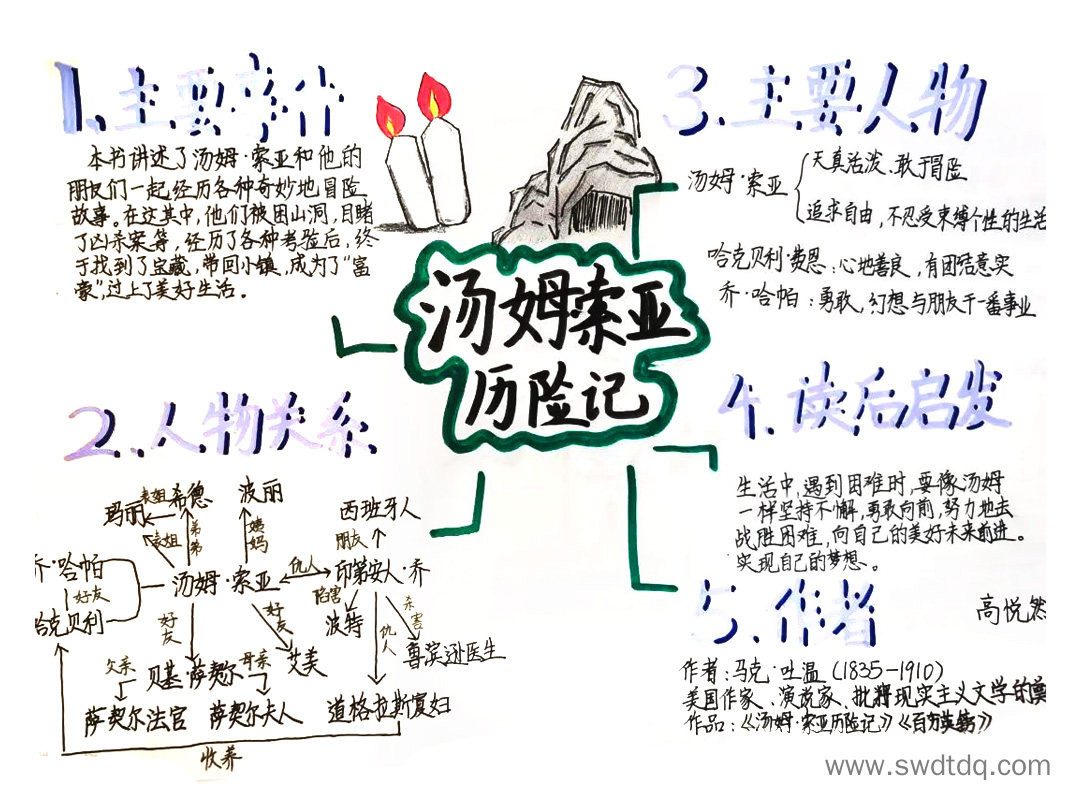 汤姆索亚
历险记
1、主要简介
本书讲述了汤姆·索亚和他的
朋友们一起经历各种奇妙地冒险
故事。在这其中,他们被困山洞,目睹
了凶杀案等,经历了各种考验后,终
于找到了宝藏,带回小镇,成为了“富
豪”,过上了美好生活。
2、人物关系
玛丽
表姐
希德
波丽
表姐
弟弟
姨妈
西班牙人
朋友
乔·哈帕
好友
哈克贝利
汤姆·索亚
仇人
印第安人·乔
陷害
波特
仇人
杀害
鲁滨逊医生
好友
好友
艾美
父亲
贝基·萨契尔
母亲
萨契尔法官
萨契尔夫人
道格拉斯寡妇
收养
3、主要人物
汤姆·索亚
天真活泼、敢于冒险
追求自由,不忍受束缚个性的生活
哈克贝利·费恩:心地善良,有团结意实
乔·哈帕:勇敢,幻想与朋友干一番事业
4、读后启发
生活中,遇到困难时,要像汤姆
一样坚持不懈,勇敢向前,努力地去
战胜困难,向自己的美好未来前进。
实现自己的梦想。
5、作者
高悦然
作者:马克·吐温(1835-1910)
美国作家、演说家、批判现实主义文学的
作品:《汤姆·索亚历险记》《百万英镑》
www.swdtdq.com